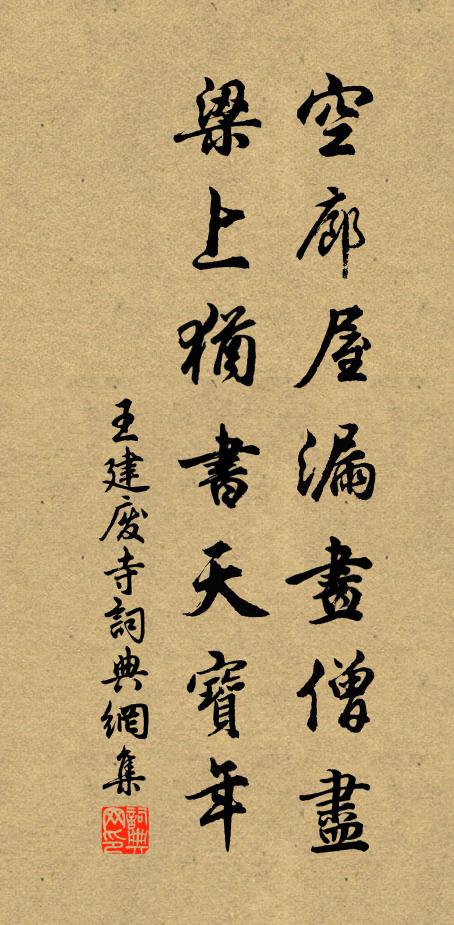 空廊屋漏畫僧盡
梁上猶書天寶年
王建廢寺詞典網集
詞典網印